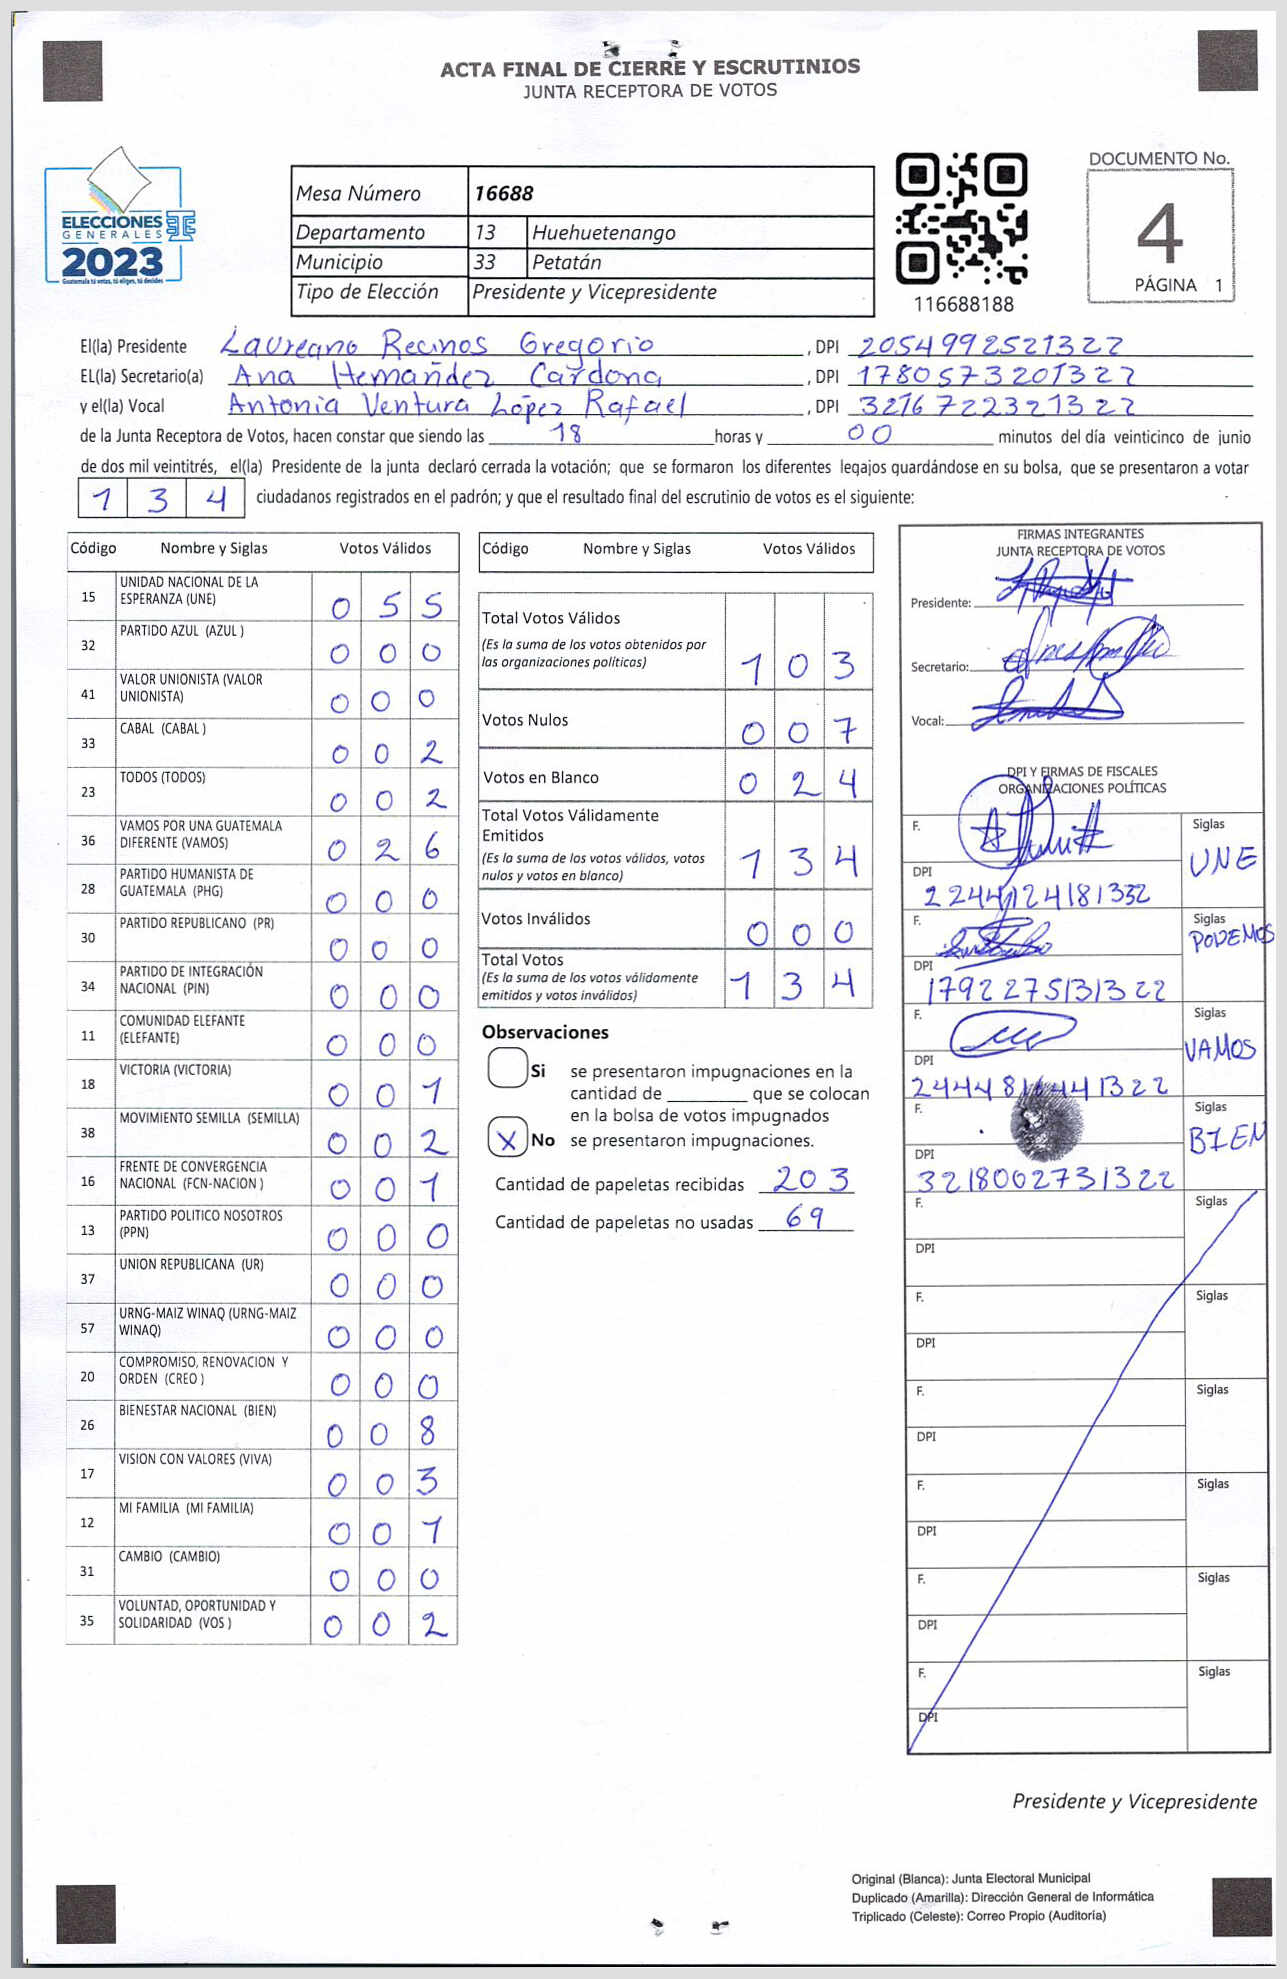 ACTA FINAL DE CIERRE Y ESCRUTINIOS
JUNTA RECEPTORA DE VOTOS
ELECCIONES
GENERALES
2023
Guatemala tú votas, tú eliges, tú decides
Mesa Número 16688
Departamento 13 Huehuetenango
Municipio 33 Petatán
Tipo de Elección Presidente y Vicepresidente
116688188
DOCUMENTO No.
4
PÁGINA 1
El(la) Presidente Laureano Recinos Gregorio , DPI 2054992521322
EL(la) Secretario(a) Ana Hernández Cardona , DPI 1780573201322
y el(la) Vocal Antonia Ventura López Rafael , DPI 3216722321322
de la Junta Receptora de Votos, hacen constar que siendo las 18 horas y 00 minutos del día veinticinco de junio
de dos mil veintitrés, el(la) Presidente de la junta declaró cerrada la votación; que se formaron los diferentes legajos quardándose en su bolsa, que se presentaron a votar
1 3 4 ciudadanos registrados en el padrón; y que el resultado final del escrutinio de votos es el siguiente:
Código Nombre y Siglas Votos Válidos
15 UNIDAD NACIONAL DE LA
ESPERANZA (UNE) 0 5 5
32 PARTIDO AZUL (AZUL ) 0 0 0
41 VALOR UNIONISTA (VALOR
UNIONISTA) 0 0 0
33 CABAL (CABAL ) 0 0 2
23 TODOS (TODOS) 0 0 2
36 VAMOS POR UNA GUATEMALA
DIFERENTE (VAMOS) 0 2 6
28 PARTIDO HUMANISTA DE
GUATEMALA (PHG) 0 0 0
30 PARTIDO REPUBLICANO (PR) 0 0 0
34 PARTIDO DE INTEGRACIÓN
NACIONAL (PIN) 0 0 0
11 COMUNIDAD ELEFANTE
(ELEFANTE) 0 0 0
18 VICTORIA (VICTORIA) 0 0 1
38 MOVIMIENTO SEMILLA (SEMILLA) 0 0 2
16 FRENTE DE CONVERGENCIA
NACIONAL (FCN-NACION ) 0 0 1
13 PARTIDO POLITICO NOSOTROS
(PPN) 0 0 0
37 UNION REPUBLICANA (UR) 0 0 0
57 URNG-MAIZ WINAQ (URNG-MAIZ
WINAQ) 0 0 0
20 COMPROMISO, RENOVACION Y
ORDEN (CREO ) 0 0 0
26 BIENESTAR NACIONAL (BIEN) 0 0 8
17 VISION CON VALORES (VIVA) 0 0 3
12 MI FAMILIA (MI FAMILIA) 0 0 1
31 CAMBIO (CAMBIO) 0 0 0
35 VOLUNTAD, OPORTUNIDAD Y
SOLIDARIDAD (VOS ) 0 0 2
Código Nombre y Siglas Votos Válidos
Total Votos Válidos
(Es la suma de los votos obtenidos por
las organizaciones políticas) 1 0 3
Votos Nulos 0 0 7
Votos en Blanco 0 2 4
Total Votos Válidamente
Emitidos
(Es la suma de los votos válidos, votos
nulos y votos en blanco) 1 3 4
Votos Inválidos 0 0 0
Total Votos
(Es la suma de los votos válidamente
emitidos y votos inválidos) 1 3 4
Observaciones
Si se presentaron impugnaciones en la
cantidad de ________ que se colocan
en la bolsa de votos impugnados
X No se presentaron impugnaciones.
Cantidad de papeletas recibidas 203
Cantidad de papeletas no usadas 69
FIRMAS INTEGRANTES
JUNTA RECEPTORA DE VOTOS
Presidente:
Secretario:
Vocal:
DPI Y FIRMAS DE FISCALES
ORGANIZACIONES POLÍTICAS
F. Siglas
UNE
DPI
F. Siglas
PODEMOS
DPI
1792275131322
F. Siglas
VAMOS
DPI
F. Siglas
BIEN
DPI
3218002731322
F. Siglas
DPI
F. Siglas
DPI
F. Siglas
DPI
F. Siglas
DPI
F. Siglas
DPI
F. Siglas
DPI
Presidente y Vicepresidente
Original (Blanca): Junta Electoral Municipal
Duplicado (Amarilla): Dirección General de Informática
Triplicado (Celeste): Correo Propio (Auditoría)